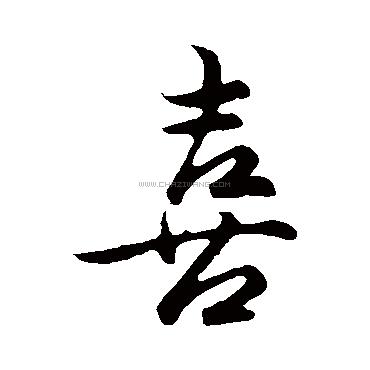 喜
WWW.CHAZIWANG.COM